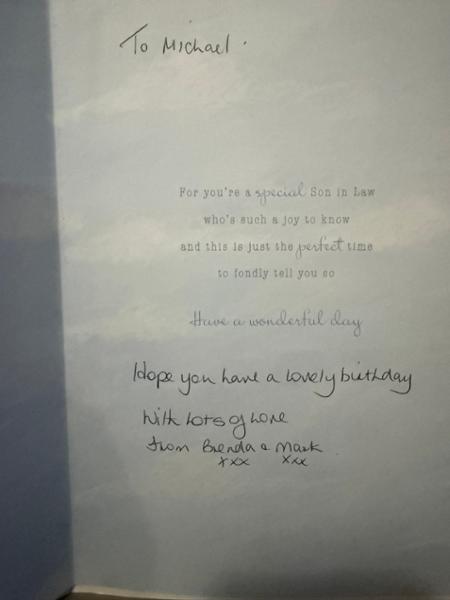 To Michael.
For you're a special Son in Law
who's such a joy to know
and this is just the perfect time
to fondly tell you so
Have a wonderful day
Hope you have a lovely birthday
With lots of love
from Brenda & Mark
xxx xxx